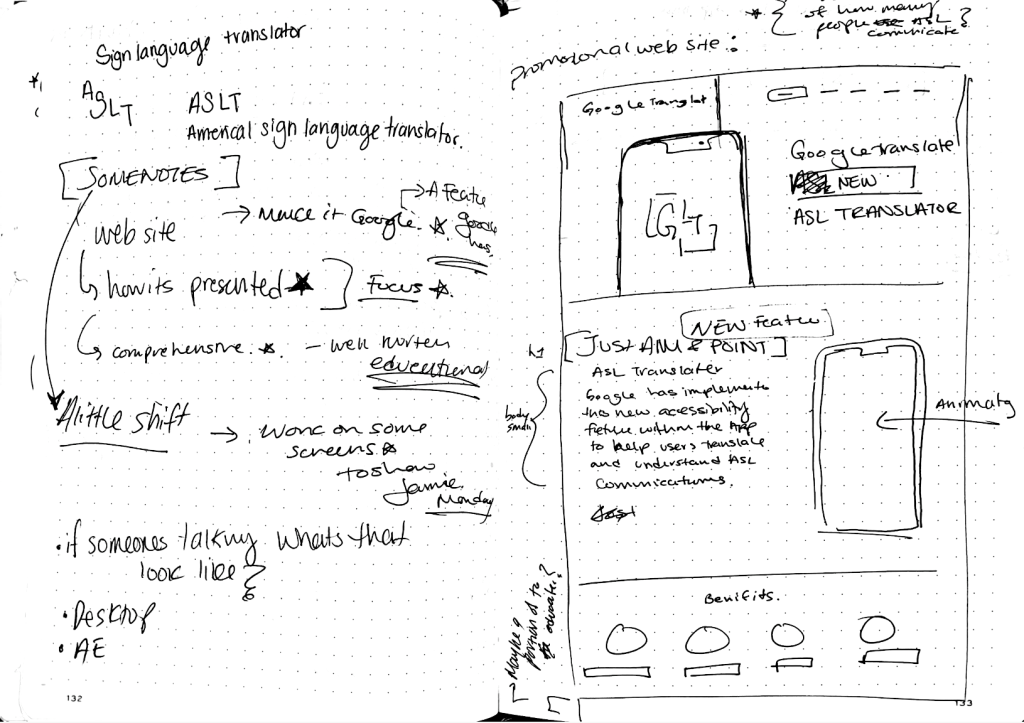 Sign language translator
ASLT
ASLT
Americal sign language translator.
[SOME NOTES]
web site
→ Make it Google.
→ A Featu
google
has.
↳ how its presented ★ ] Focus ★.
↳ comprehensive. ★. – well
educational
A little shift
→ work on some
screens.
to show
Jamie.
Monday
• if someones talking whats that
look like?
• Desktop
• AE
132
★ { of how many
people ASL
comunicate?
promotional web site:
Google Translat
Google translate
NEW
ASL TRANSLATOR
G T
NEW Featu
h1
[JUST AIM & POINT]
body
small
ASL Translater
Google has implemente
this new accessibility
fetue within the App
to help users translate
and understand ASL
Communications.
Animatg
Benifits.
→ Maybe a
portion of to
animate.?
133